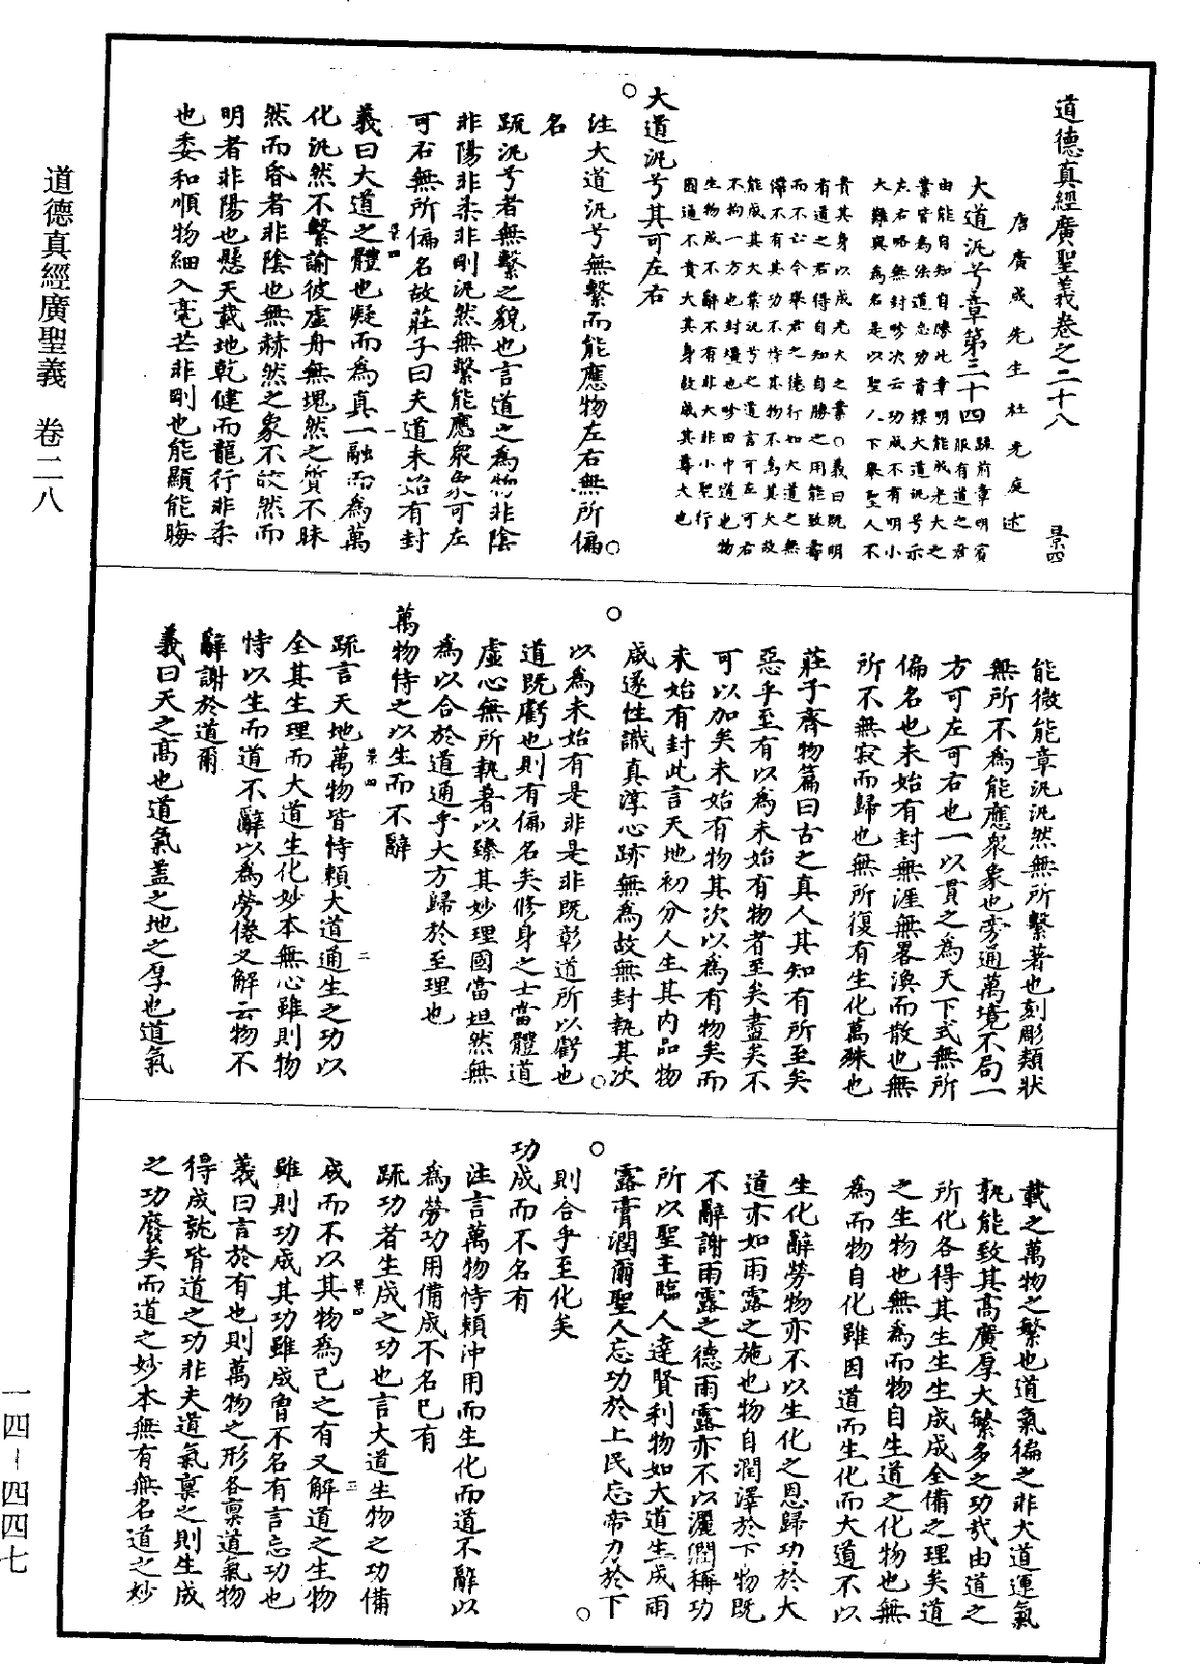 道德真經廣聖義卷之二十八
景四
唐廣成先生杜光庭述
大道汎兮章第三十四
疏前章明賓服有道之君
由能自知自勝此章明能成光大之
業皆為法道忘功首標大道汎兮示
左右略無封畛次云功成不有明小
大難與為名是以聖人下舉聖人不
貴其身以成光大之業○義曰既明
有道之君得自知自勝之用能致壽
而不亡今舉君之德行如大道之無
偉不有其功不恃其物不為其大故
能成其大業汎兮之道言可左可右
不拘一方也封壃也畛由中道也物
生物成不辭不有非大非小聖行
因道不貴大其身故成其尊大也
大道汎兮其可左右
注大道汎兮無繫而能應物左右無所偏
名
疏汎兮者無繫之貌也言道之為物非陰
非陽非柔非剛汎然無繫能應衆象可左
可右無所偏名故莊子曰夫道未始有封
景四
一
義曰大道之體也凝而為真一融而為萬
化汎然不繫諭彼虛舟無塊然之質不昧
然而昏者非陰也無赫然之象不皎然而
明者非陽也懸天載地乾健而龍行非柔
也委和順物細入毫芒非剛也能顯能晦
能微能章汎汎然無所繫著也刻彫類狀
無所不為能應衆象也旁通萬境不局一
方可左可右也一以貫之為天下式無所
偏名也未始有封無涯無畧渙而散也無
所不無寂而歸也無所復有生化萬殊也
莊子齊物篇曰古之真人其知有所至矣
惡乎至有以為未始有物者至矣盡矣不
可以加矣未始有物其次以為有物矣而
未始有封此言天地初分人生其内品物
咸遂性識真淳心跡無為故無封執其次
以為未始有是非是非既彰道所以虧也
道既虧也則有偏名矣修身之士當體道
虛心無所執著以臻其妙理國當坦然無
為以合於道通乎大方歸於至理也
萬物恃之以生而不辭
景四
二
疏言天地萬物皆恃賴大道通生之功以
全其生理而大道生化妙本無心雖則物
恃以生而道不辭以為勞倦又解云物不
辭謝於道爾
義曰天之高也道氣蓋之地之厚也道氣
載之萬物之繁也道氣徧之非大道運氣
孰能致其高廣厚大繁多之功哉由道之
所化各得其生生生成成全備之理矣道
之生物也無為而物自生道之化物也無
為而物自化雖因道而生化而大道不以
生化辭勞物亦不以生化之恩歸功於大
道亦如雨露之施也物自潤澤於下物既
不辭謝雨露之德雨露亦不以灑潤稱功
所以聖主臨人達賢利物如大道生成雨
露膏潤爾聖人忘功於上民忘帝力於下
則合乎至化矣
功成而不名有
注言萬物恃賴沖用而生化而道不辭以
為勞功用備成不名己有
疏功者生成之功也言大道生物之功備
景四
三
成而不以其物為己之有又解道之生物
雖則功成其功雖成曾不名有言忘功也
義曰言於有也則萬物之形各禀道氣物
得成就皆道之功非夫道氣禀之則生成
之功廢矣而道之妙本無有無名道之妙
道德真經廣聖義　卷二八
一四－四四七